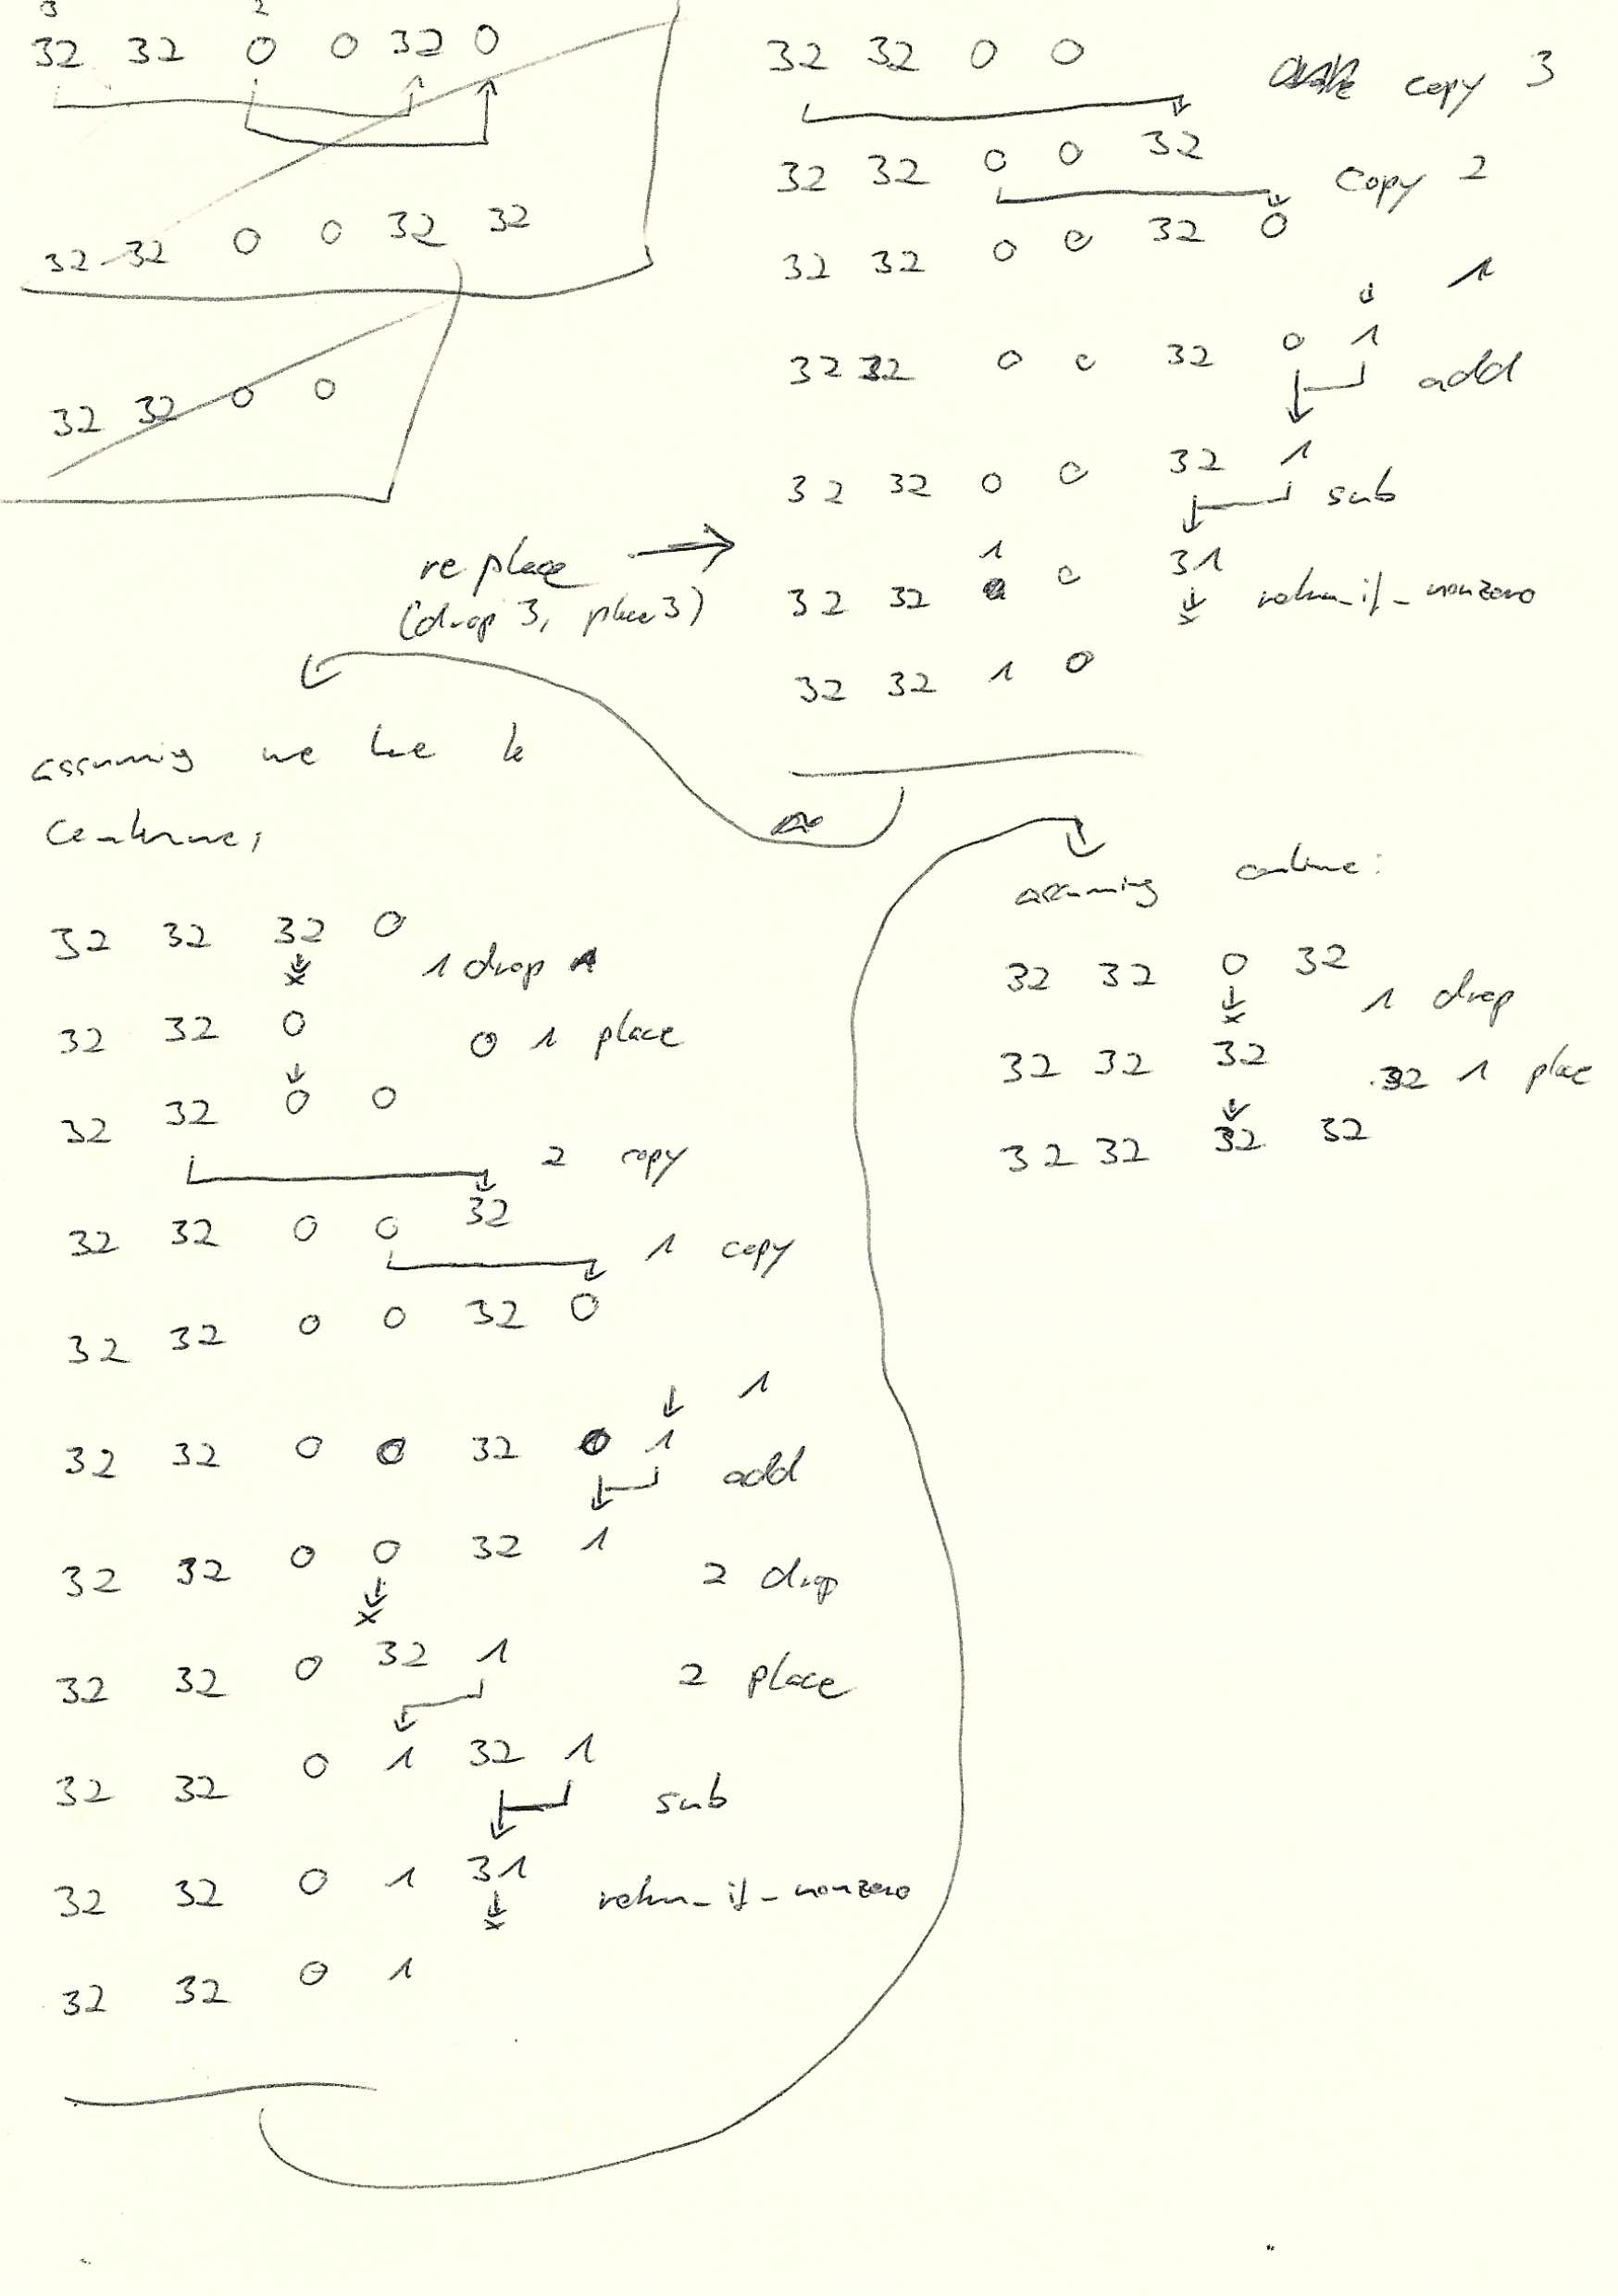 3 2
32 32 0 0 32 0
32 32 0 0 32 32
32 32 0 0
32 32 0 0
copy 3
32 32 0 0 32
copy 2
32 32 0 0 32 0
1
32 32 0 0 32 0 1
add
32 32 0 0 32 1
sub
replace
(drop 3, place 3)
1
32 32 0 31
return_if_nonzero
32 32 1 0
assuming we
32 32 32 0
1 drop
32 32 0
0 1 place
32 32 0 0
2 copy
32 32 0 0 32
1 copy
32 32 0 0 32 0
1
32 32 0 0 32 0 1
add
32 32 0 0 32 1
2 drop
32 32 0 32 1
2 place
32 32 0 1 32 1
sub
32 32 0 1 31
return_if_nonzero
32 32 0 1
assuming
32 32 0 32
1 drop
32 32 32
32 1 place
32 32 32 32